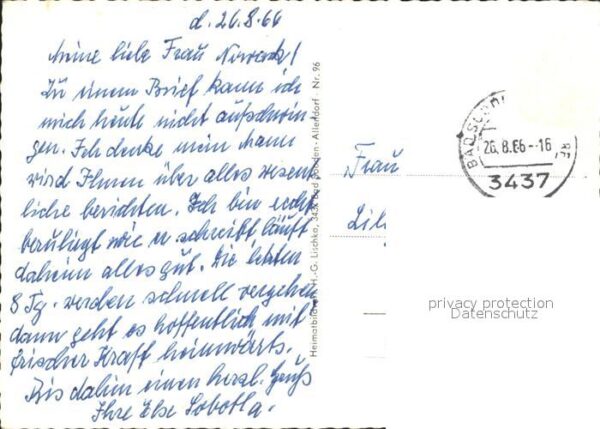 d. 26.8.66
Meine liebe Frau Nowack!
Zu einem Brief kann ich
mich heute nicht aufschwin
gen. Ich denke mein Mann
wird Ihnen über alles wesent
liche berichten. Ich bin recht
beruhigt wie er schreibt läuft
daheim alles gut. Die letzten
8 Tg. werden schnell vergehen
dann geht es hoffentlich mit
frischer Kraft heimwärts.
Bis dahin einen herzl. Gruß
Ihre Else Sobotta.
Heimatbild H.-G. Lischka, 343 Bad Sooden-Allendorf - Nr. 96
Frau
Lil
BAD SOOD
26.8.66-16
3437
privacy protection
Datenschutz